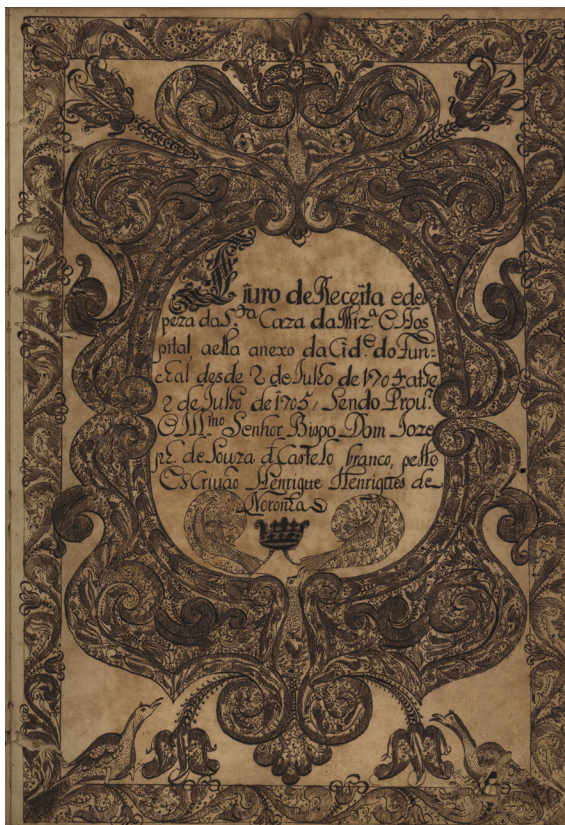 Liuro de Receita edes
peza da S.ta Caza da Miz.a E Hos
pital aella anexo da Cid.e do Fun=
chal desde 2 de Julho de 1704 athe
2 de Julho de 1705, Sendo Prou.or
O Ill.mo Senhor Bispo Dom Joze
de Souza d Castelo branco,
Escriuão Henrique Henriques de
Noronha